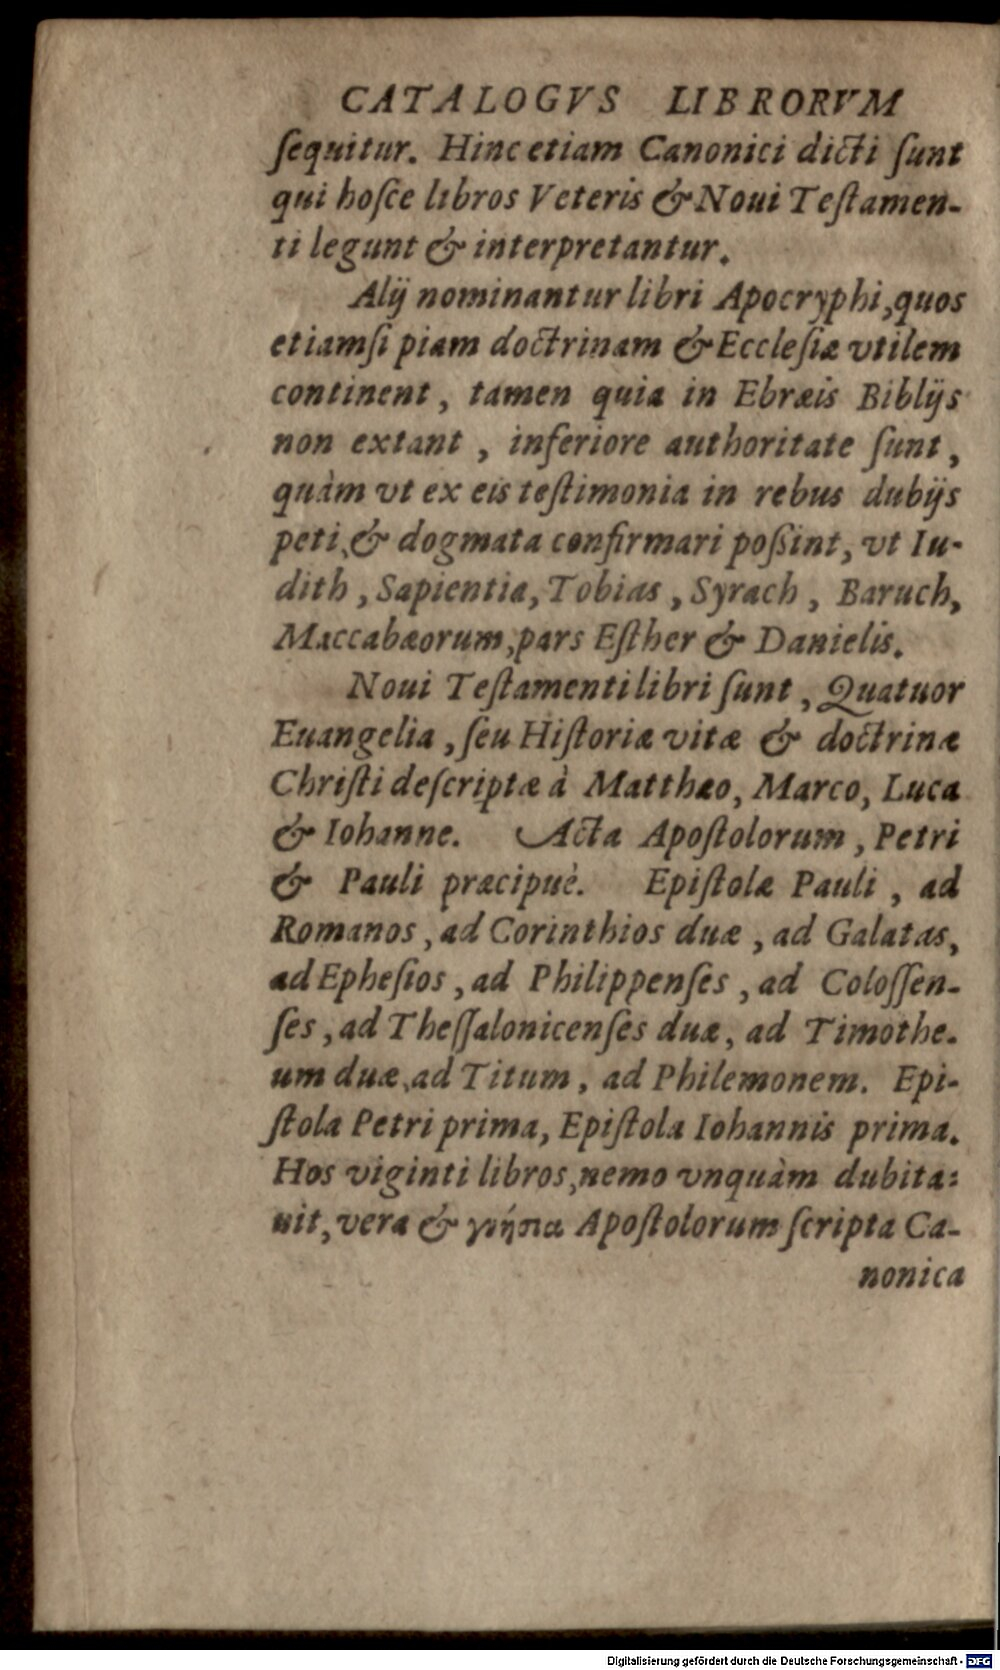 CATALOGVS LIBRORVM
ſequitur. Hinc etiam Canonici dicti ſunt
qui hoſce libros Veteris & Noui Teſtamen-
ti legunt & interpretantur.
Alij nominantur libri Apocryphi, quos
etiamſi piam doctrinam & Eccleſiæ vtilem
continent, tamen quia in Ebræis Biblijs
non extant, inferiore authoritate ſunt,
quàm vt ex eis teſtimonia in rebus dubijs
peti, & dogmata confirmari poßint, vt Iu-
dith, Sapientia, Tobias, Syrach, Baruch,
Maccabæorum, pars Eſther & Danielis.
Noui Teſtamenti libri ſunt, Quatuor
Euangelia, ſeu Hiſtoriæ vitæ & doctrinæ
Chriſti deſcriptæ à Matthæo, Marco, Luca
& Iohanne. Acta Apoſtolorum, Petri
& Pauli præcipuè. Epiſtolæ Pauli, ad
Romanos, ad Corinthios duæ, ad Galatas,
ad Epheſios, ad Philippenſes, ad Coloſſen-
ſes, ad Theſſalonicenſes duæ, ad Timothe-
um duæ, ad Titum, ad Philemonem. Epi-
ſtola Petri prima, Epiſtola Iohannis prima.
Hos viginti libros, nemo vnquàm dubita-
uit, vera & γνήσια Apoſtolorum ſcripta Ca-
nonica
Digitalisierung gefördert durch die Deutsche Forschungsgemeinschaft - DFG